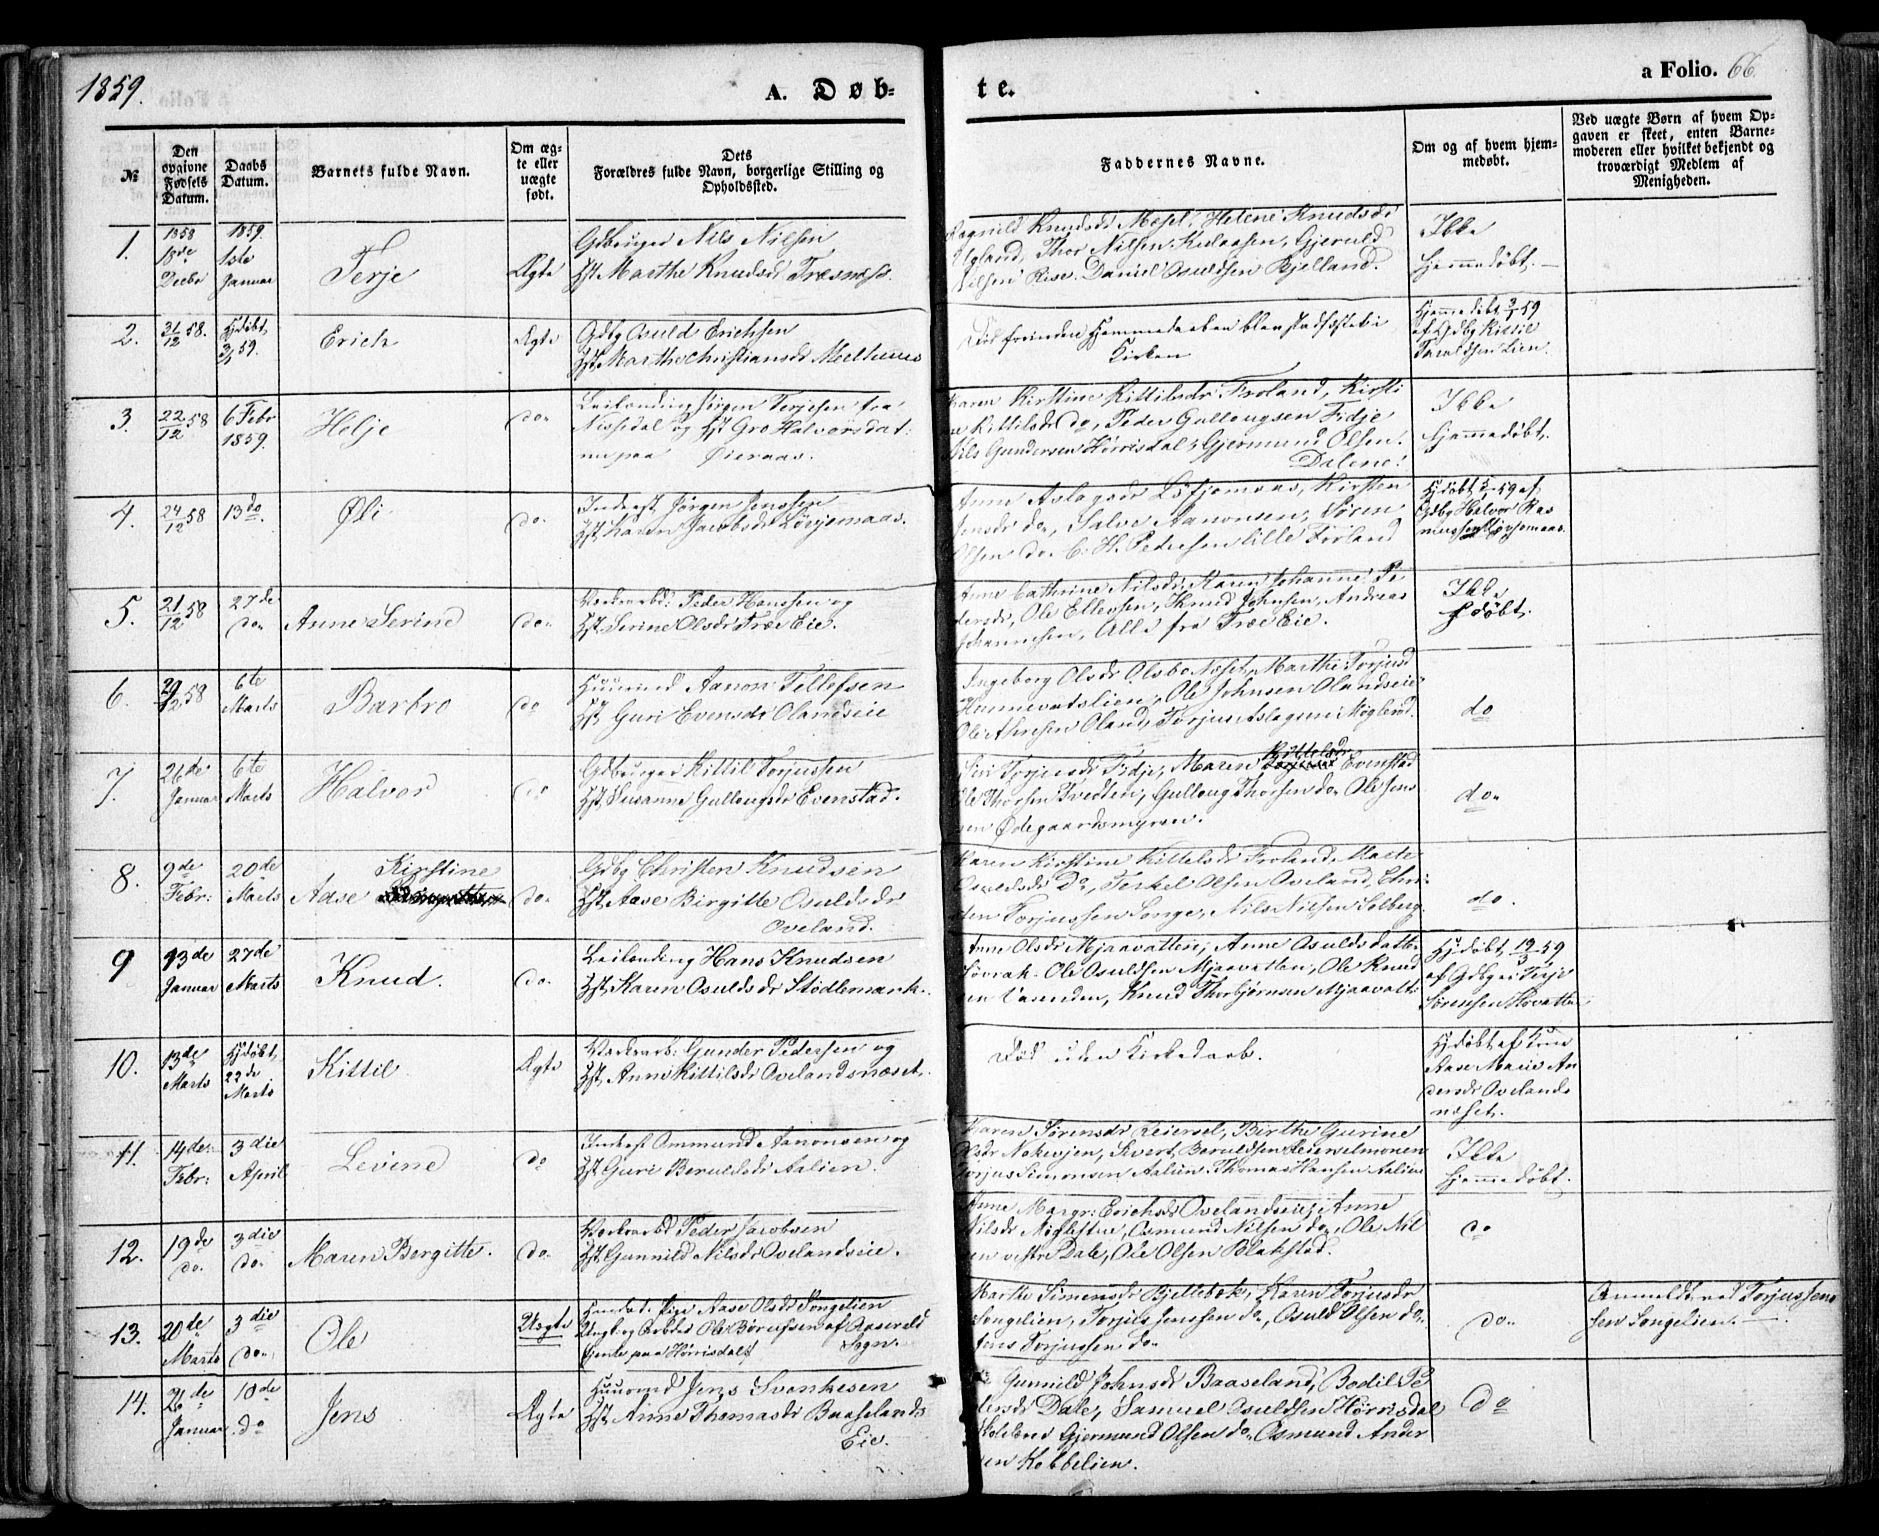 1859.
A. Døbte.
a Folio. 66
№
Den opgivne Fødsels Datum.
Daabs Datum.
Barnets fulde Navn.
Om ægte eller uægte født.
Dets Forældres fulde Navn, borgerlige Stilling og Opholdssted.
Faddernes Navne.
Om og af hvem hjemmedøbt.
Ved uægte Børn af hvem Opgaven er skeet, enten Barnemoderen eller hvilket bekjendt og troværdigt Medlem af Menigheden.
1. 1858 18de Decbr 1859. 1ste Januar Terje Ægte
Gdbruger Nils Nilsen
Hst. Marthe Knudsdr Træsnæs.
Ragnild Knudsdr Mesel, Helene Knudsdr
Ugland, Thor Nilsen, Gjeruld
Nilsen Rise. Daniel Osuldsen Bjelland.
Ikke
hjemmedøbt.
2. 31/12 58. Hjdøbt 3/1 59. Erich Ægte
Gdbg Osuld Erichsen
Hst. Marthe Christiansdr Mælhuus
Død forinden Hjemmedaaben blev stadfæstet i
Kirken
Hjemmedøbt 3/1 59
af Gdbg Kittil
Taraldsen Lien.
3. 22/12 58 6 Febr 1859. Helje do.
Leilending Jørgen Terjesen fra
Nissedal og Hst Gro Halvorsdat.
paa Øieraas.
Karen Kirstine Kittilsdr Froland, Kirsti
ne Kittilsdr do, Peder Gullougsen Fidje
Nils Gundersen Hørrisdal, Gjermund Olsen
Dalene.
Ikke
hjemmedøbt.
4. 24/12 58 13 do. Øli do.
Inderst Jørgen Jenssen
Hst. Karen Jacobsdr Løvjomaas.
Anne Aslagsdr Løvjomaas, Kirsten
Jensdr do, Salve Aanonsen, Søren
Olsen do. C. H. Pedersen lille Forland
Hjdøbt 59 af
Gdbg Halvor Ras
mussen Løvjomaas.
5. 21/12 58 27de do. Anne Serine do.
Værksarbd: Peder Hanssen og
Hst. Serine Olsdr Træ Eie.
Anne Cathrine Nilsdr, Maren Johanne Pe
dersdr, Ole Ellevsen, Knud Johnsen, Andreas
Johannesen, Alle fra Træ Eie.
Ikke
Hdøbt.
6. 29/12 58 6te Marts Barbro do
Huusmd Aanon Tellefsen
Hst. Guri Evensdr Olandseie
Ingeborg Olsdr Olsbo Næset, Marthe Torjusd
Hunnevatslien, Ole Johnsen Olandseie
Ole Oland, Torjus Aslagsen Møglend.
do
7. 26de Januar 6te Marts Halvor do
Gdbruger Kittil Torjussen
Hst. Susanne Gullougsdr Evenstad.
Siri Torjusdr Fidje, Maren Kittelsdr Evenstad
Ole Thorsen Tvedten, Gulloug Thorsen do. Ole Jens
sen Ødegaardsmyren.
do.
8. 9de Febr: 20de Marts Aase Kirstine do.
Gdbg Christen Knudsen
Hst. Aase Birgitte Osuldsdr
Oveland.
Karen Kirstine Kittelsdr Froland, Marte
Osuldsdr Do, Terkel Olsen Oveland, Chri
sten Torjussen Songe, Nils Nielsen Solberg.
do.
9 13de Januar 27de Marts Knud. do.
Leilending Hans Knudsen
Hst. Karen Osuldsdr Stødlemark.
Anne Olsdr Mjaavatten, Anne Osuldsdatter
Løvrak. Ole Osuldsen Mjaavatten, Ole Knud
sen Vasenden, Knud Thorbjørnsen Mjaavatt:
Hjdøbt 19/3 59
af Gdbger Terje
Sørensen
10. 13de Marts Hjdøbt. 22de Marts Kittil. Ægte
Værksarb: Gunder Pedersen og
Hst. Anne Kittilsdr Ovelandsnæset.
Død uden Kirkedaab.
Hjdøbt af Kone
Aase Marie An
dersdr Ovelands
næset.
11. 14de Febr: 3die April Levine do
Inderst Ommund Aanonsen og
Hst. Guri Beruldsdr Aalien.
Karen Sørensdr Reiersel, Birthe Gurine
Olsdr Nokevjen, Sivert Beruldsen Reierselmonen
Torjus Simonsen Aalien. Thomas Hansen Aalien
Ikke
hjemmedøbt.
12. 19de do. 3die do. Maren Bergitte. do.
Værksarbd Peder Jacobsen
Hst. Gunnild Nilsdr Ovelandseie.
Anne Margr: Erichsdr Ovelandseie, Anne
Nilsdr Møglestue, Osmund Nilsen do, Ole Nil
sen vestre Dale, Ole Olsen Blakstad.
do
13. 20de Marts 3die do. Ole Uægte
Pige Aase Olsdr Songelien
Ungk og Arbdr Ole Børufsen af Sogn.
tjente paa Hørrisdal
Marthe Simensdr Bjellebek, Karen Torjusdr
Songelien, Torjuls Jenssen do, Osuld Olsen do.
Jens Torjussen do.
do.
Anmeldt ved Torjus Jens
sen Songelien.
14. 26de Januar 10de do Jens Ægte
Huusmd Jens Svenkesen
Hst. Anne Thomasdr Baaselands
Eie.
Gunnild Johnsdr Baaseland, Bodil Pe
dersdr Dale, Samuel Osuldsen Hørrisdal
Skolelærer Gjermund Olsen do. Osmund Ander
sen Kobbelien.
do